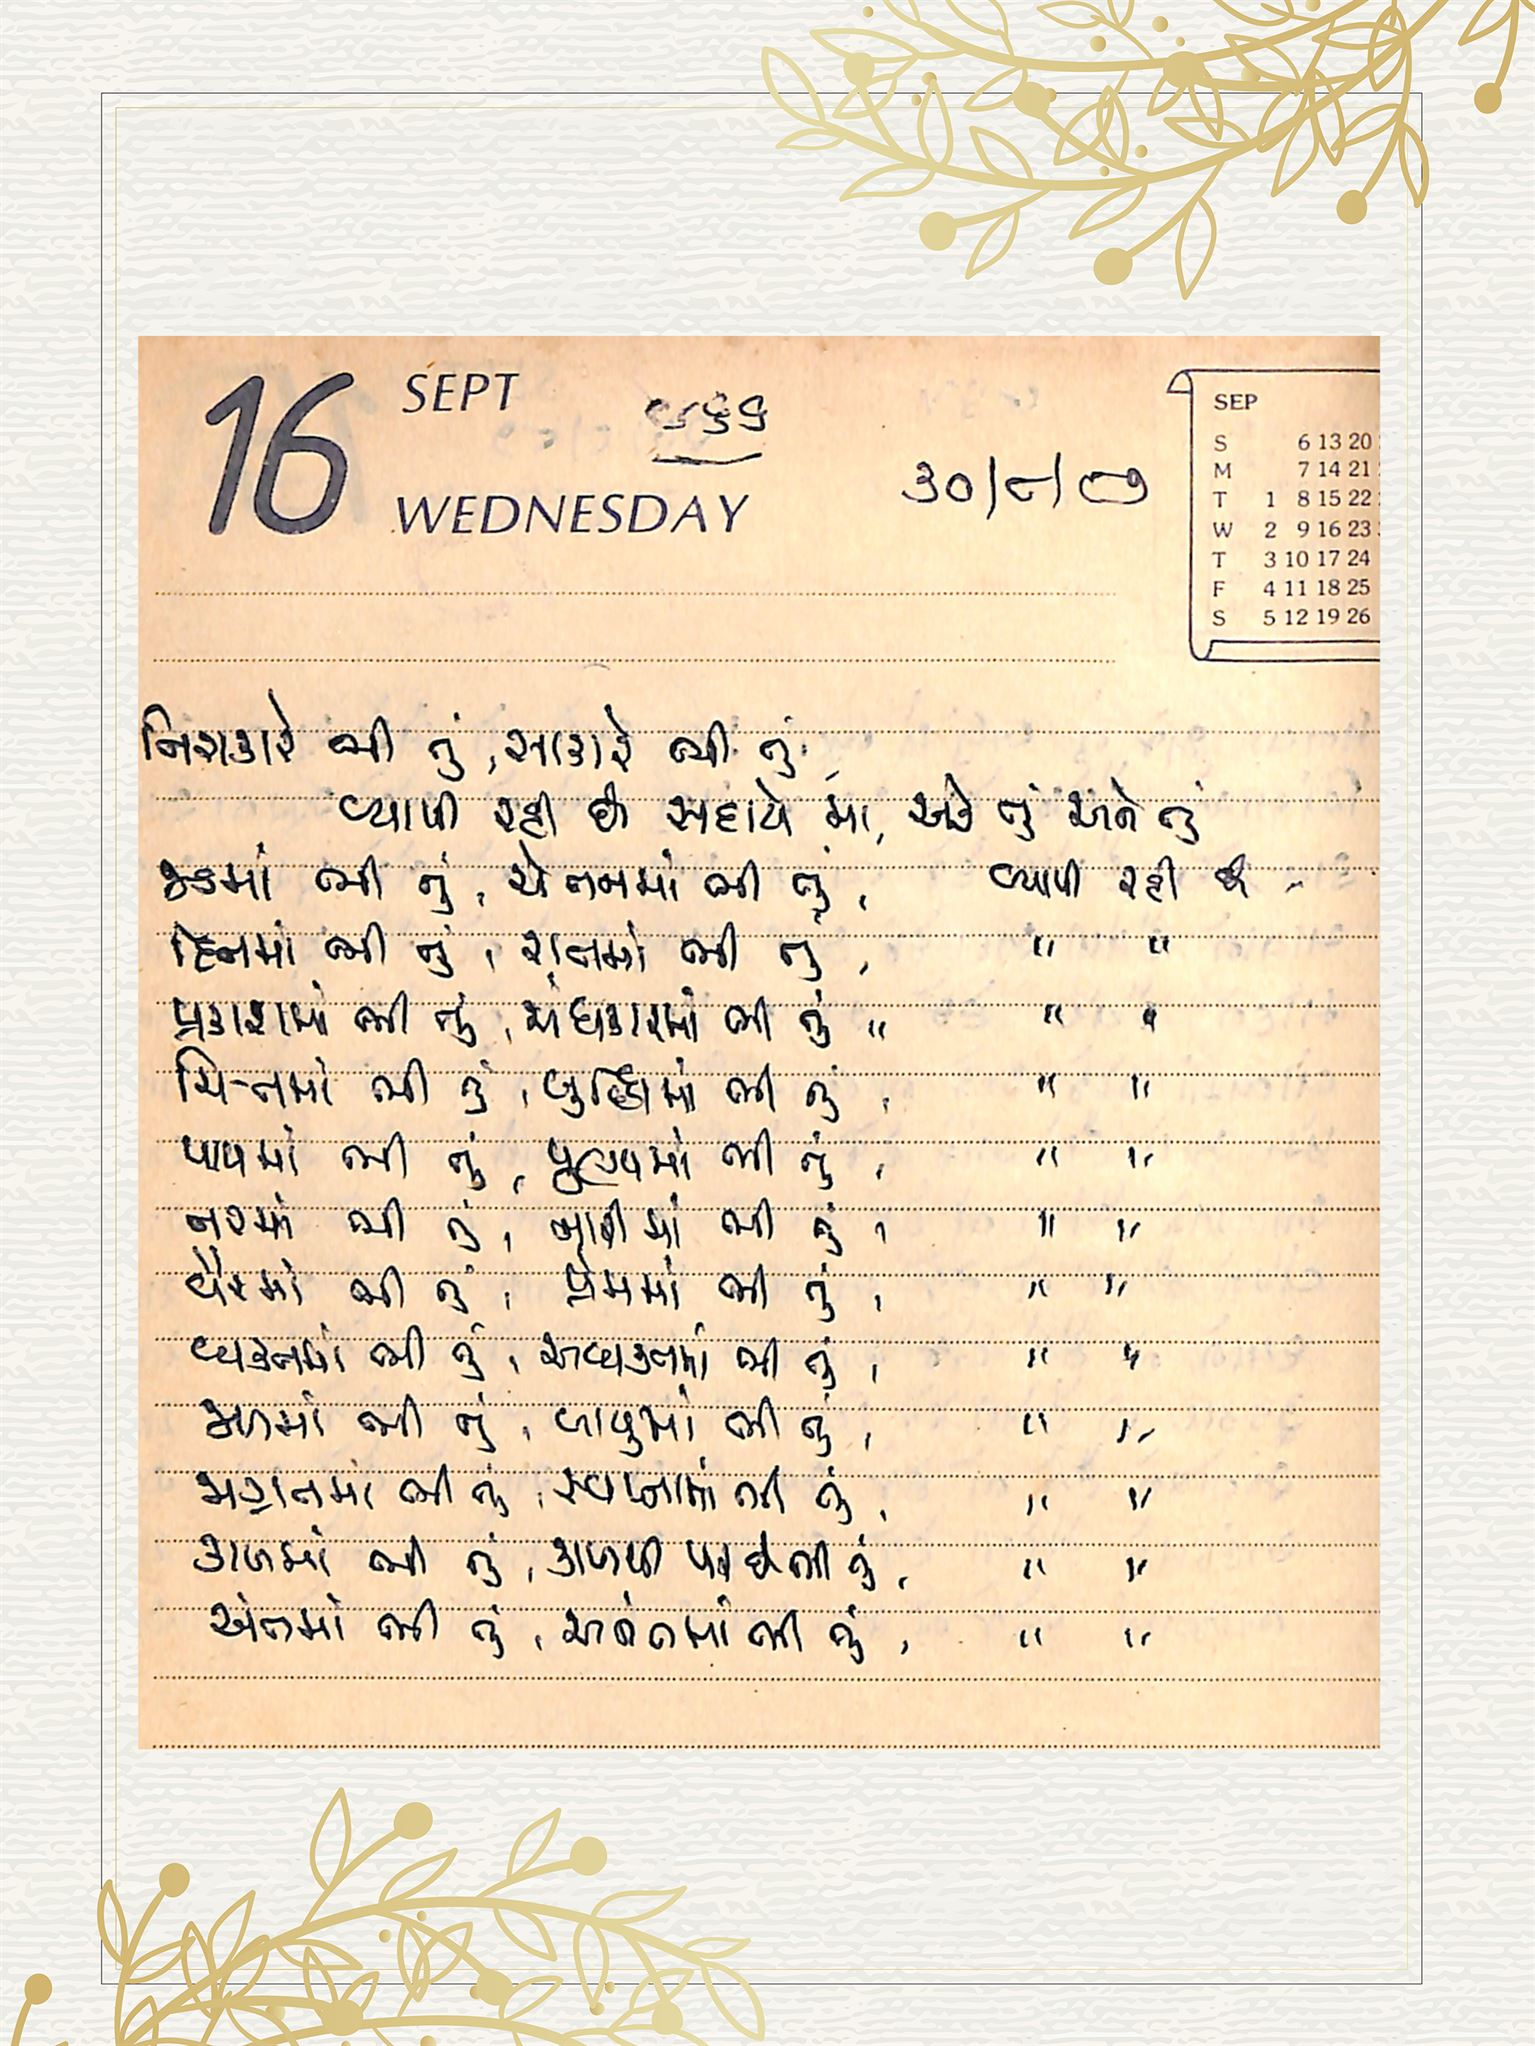 16 SEPT
WEDNESDAY
૩૦/૮/૮૭
SEP
S 6 13 20
M 7 14 21
T 1 8 15 22
W 2 9 16 23
T 3 10 17 24
F 4 11 18 25
S 5 12 19 26
નિરાકારે ભી તું, સાકારે ભી તું,
વ્યાપી રહી છે સદાયે મા, એક તું અને તું
જડમાં ભી તું, ચેતનમાં ભી તું, વ્યાપી રહી છે -
દિનમાં ભી તું, રાતમાં ભી તું, " "
પ્રકાશમાં ભી તું, અંધકારમાં ભી તું " " "
ચિત્તમાં ભી તું, બુદ્ધિમાં ભી તું, " "
પાપમાં ભી તું, પુણ્યમાં ભી તું, " "
નરમાં ભી તું, નારીમાં ભી તું, " "
વૈરમાં ભી તું, પ્રેમમાં ભી તું, " "
વ્યક્તમાં ભી તું, અવ્યક્તમાં ભી તું, " "
જળમાં ભી તું, વાયુમાં ભી તું, " "
જાગ્રતમાં ભી તું, સ્વપ્નામાં ભી તું, " "
કાળમાં ભી તું, કાળથી પર છે ભી તું, " "
અંતમાં ભી તું, અનંતમાં ભી તું, " "